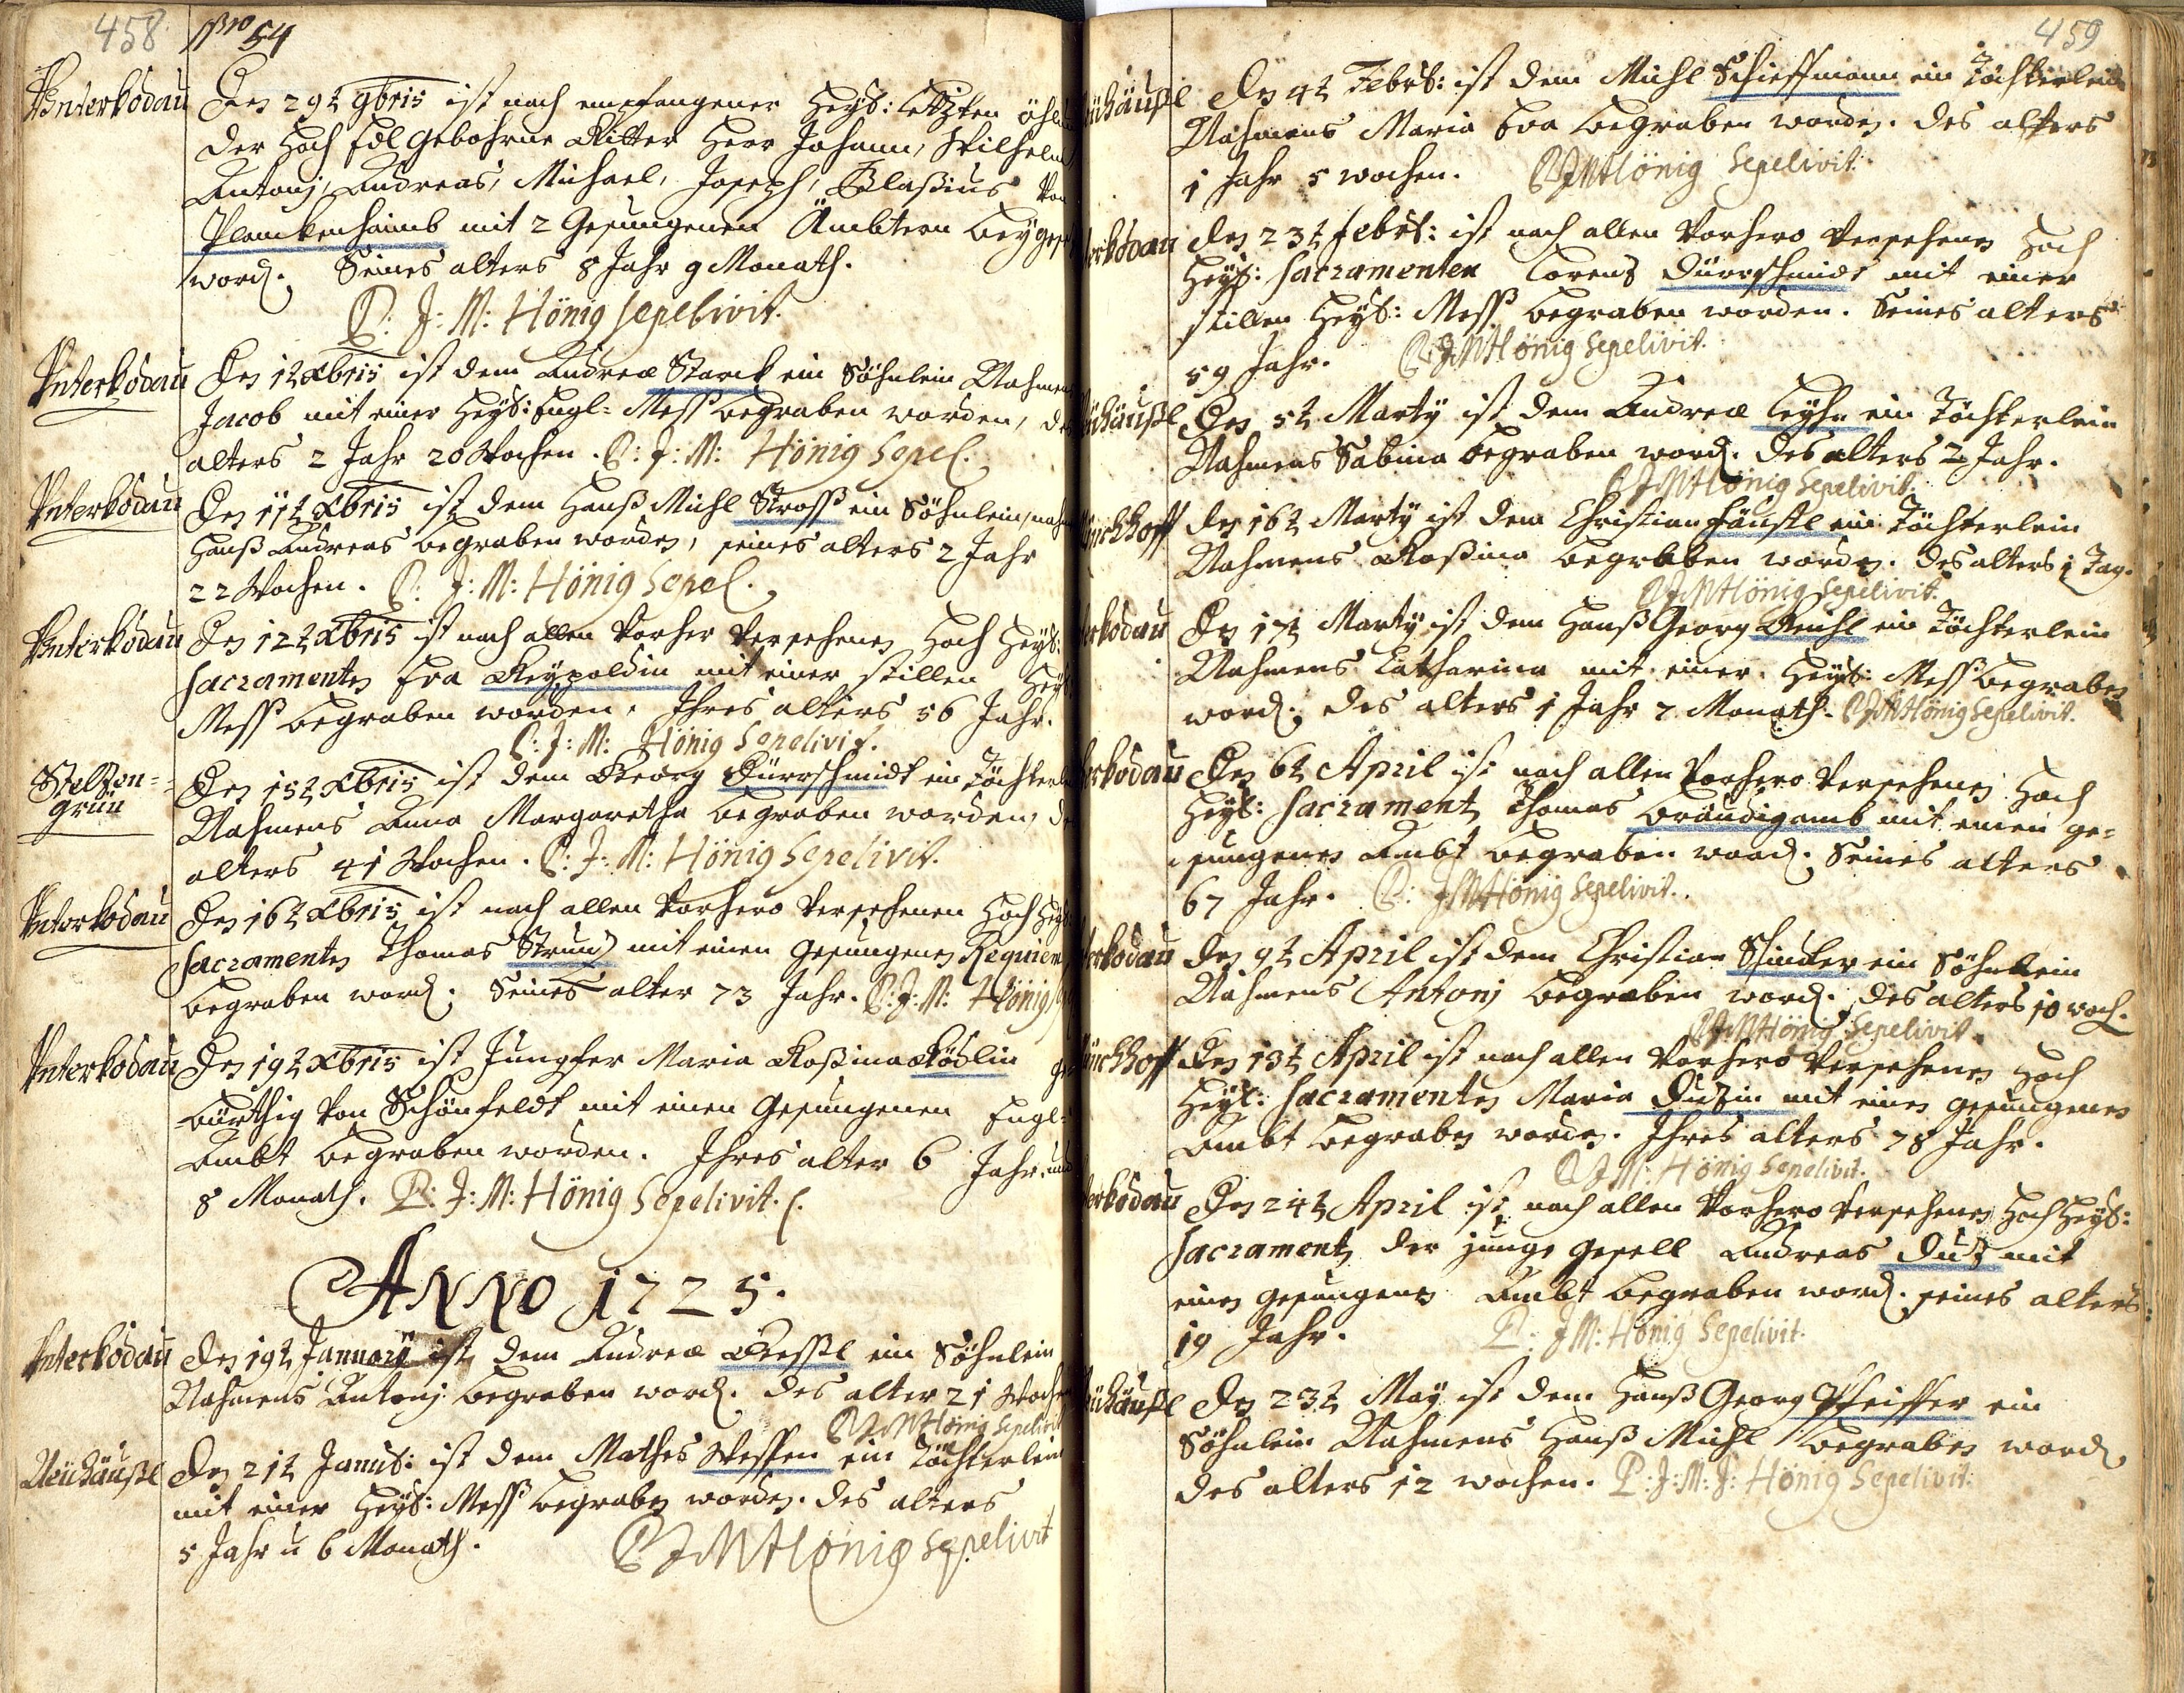 458
pro 54
Unterkodau
Den 29t 9bris ist nach empfangener Heyl: Letzten öhlu
der Hoch Edl Gebohrne Ritter Herr Johann, Wilhelm,
Antonj, Andreas, Michael, Joseph, Blasius von
Planckenhaimb mit 2 Gesungenen Ämbtern beyges
word. Seines alters 8 Jahr 9 Monath.
P: J: M: Hönig sepelivit.
Unterkodau
Den 1t Xbris ist dem Andreæ Starck ein Söhnlein Nahmens
Jacob mit einer Heyl: Engl= Mess begraben worden, des
alters 2 Jahr 20 Wochen. P: J: M: Hönig Sepel.
Unterkodau
Den 11t Xbris ist dem Hanß Michl Stross ein Söhnlein, nahm
Hanß Andreas begraben worden, seines alters 2 Jahr
22 Wochen. P: J: M: Hönig Sepel.
Unterkodau
Den 12t Xbris ist nach allen vorher versehenen Hoch Heyl:
Sacramenten Eva Reypoldin mit einer stillen Heyl
Mess begraben worden. Ihres alters 56 Jahr.
P: J: M: Hönig Sepelivit.
Stelzen=
grün
Den 15t Xbris ist dem Georg Dürrschmidt ein Töchterle
Nahmens Anna Margaretha begraben worden, de
alters 41 Wochen. P: J: M: Hönig Sepelivit.
Unterkodau
Den 16t Xbris ist nach allen vorhero versehenen Hoch Heyl
Sacramenten Thomas Strunz mit einen gesungenen Requiem
begraben word. Seines alter 73 Jahr. P: J: M: Hönig
Unterkodau
Den 19t Xbris ist Jungfer Maria Rosina Ködlin ge
bürthig von Schönfeldt mit einen Gesungenen Engl=
Ambt begraben worden. Ihres alter 6 Jahr und
8 Monath. P: J: M: Hönig Sepelivit.
ANNO 1725.
Unterkodau
Den 19t January ist dem Andreæ Gressl ein Söhnlein
Nahmens Antonj begraben word. des alter 21 Wochen
P J M Hönig Sepelivit
Neuhäußl
Den 21t Janus: ist dem Mathes Steffen ein Töchterlein
mit einer Heyl: Mess begraben worden. des alters
5 Jahr u 6 Monath. P J M Hönig sepelivit
459
euhäußl
Den 4t Febrs: ist dem Michl Schieffmann ein Töchterlein
Nahmens Maria Eva begraben worden. des alters
1 Jahr 5 wochen. P J M Hönig Sepelivit.
erkodau
Den 23t febrs: ist nach allen vorhero versehenen Hoch
Heyl: Sacramenten Lorenz Dürrschmidt mit einer
stillen Heyl: Mess begraben worden. Seines alters
59 Jahr. P: J M Hönig Sepelivit.
euhäußl
Den 5t Marty ist dem Andreæ Leyhn ein Töchterlein
Nahmens Sabina begraben word. des alters 2 Jahr.
P J M Hönig Sepelivit
ürchhoff
Den 16t Marty ist dem Christian Fäustl ein Töchterlein
Nahmens Rosina begraben worden. des alters 1 Tag.
P J M Hönig Sepelivit.
erkodau
Den 17t Marty ist dem Hanß Georg Reichl ein Töchterlein
Nahmens Catharina mit einer Heyl: Mess begraben
word. des alters 1 Jahr 2 Monath. P J M Hönig Sepelivit.
erkodau
Den 6t April ist nach allen vorhero versehenen Hoch
Heyl: Sacrament Thomas Bräudigamb mit einen ge=
sungenen Ambt begraben word. Seines alters
67 Jahr. P: J M Hönig Sepelivit.
erkodau
Den 9t April ist dem Christian Schincker ein Söhnlein
Nahmens Antonj begraben word. des alters 10 woch.
P J M Hönig Sepelivit.
ürchhoff
Den 13t April ist nach allen vorhero versehenen Hoch
Heyl: Sacramenten Maria Duzin mit einen gesungenen
Ambt begraben worden. Ihres alters 78 Jahr.
P J M: Hönig Sepelivit.
erkodau
Den 24t April ist nach allen vorhero versehenen Hoch Heyl:
Sacrament der Junge Gesell Andreas Duz mit
einen gesungenen Ambt begraben word. seines alters
19 Jahr. P: J M: Hönig Sepelivit.
euhäußl
Den 23t May ist dem Hanß Georg Pfeiffer ein
Söhnlein Nahmens Hanß Michl begraben word
des alters 12 wochen. P: J: M: J: Hönig Sepelivit: